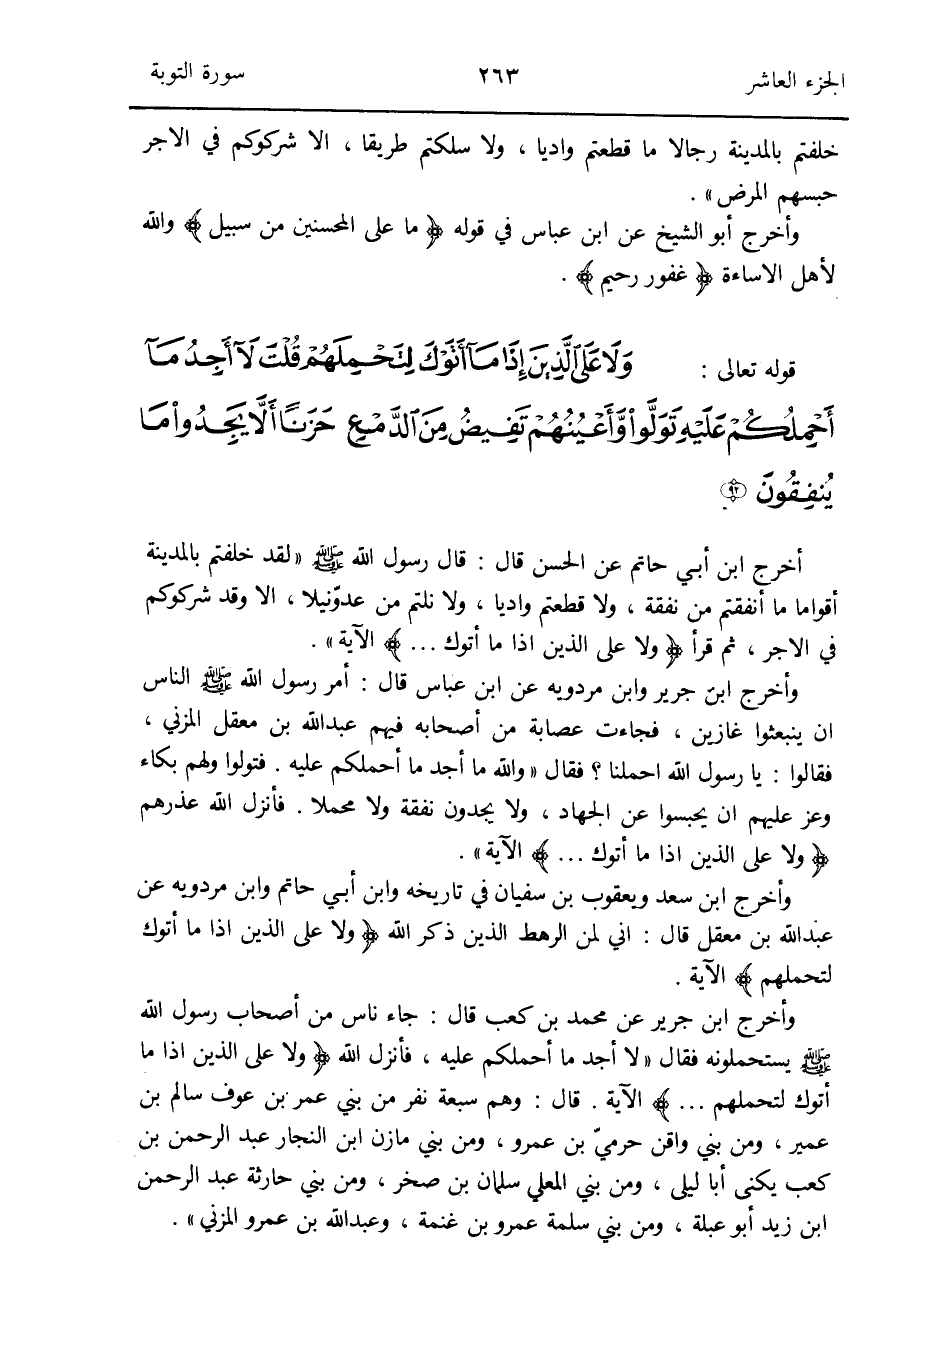 الجزء العاشر ٢٦٣ سورة التوبة
خلفتم بالمدينة رجالا ما قطعتم واديا ، ولا سلكتم طريقا ، الا شركوكم في الاجر
حبسهم المرض» .
وأخرج أبو الشيخ عن ابن عباس في قوله ﴿ ما على المحسنين من سبيل ﴾ والله
لأهل الاساءة ﴿ غفور رحيم ﴾ .
قوله تعالى : وَلَا عَلَى ٱلَّذِينَ إِذَا مَآ أَتَوْكَ لِتَحْمِلَهُمْ قُلْتَ لَآ أَجِدُ مَآ
أَحْمِلُكُمْ عَلَيْهِ تَوَلَّوا۟ وَّأَعْيُنُهُمْ تَفِيضُ مِنَ ٱلدَّمْعِ حَزَنًا أَلَّا يَجِدُوا۟ مَا
يُنفِقُونَ ٩٢
أخرج ابن أبي حاتم عن الحسن قال : قال رسول الله ﷺ «لقد خلفتم بالمدينة
أقواما ما أنفقتم من نفقة ، ولا قطعتم واديا ، ولا نلتم من عدوّنيلا ، الا وقد شركوكم
في الاجر ، ثم قرأ ﴿ ولا على الذين اذا ما أتوك ... ﴾ الآية» .
وأخرج ابن جرير وابن مردويه عن ابن عباس قال : أمر رسول الله ﷺ الناس
ان ينبعثوا غازين ، فجاءت عصابة من أصحابه فيهم عبدالله بن معقل المزني ،
فقالوا : يا رسول الله احملنا ؟ فقال «والله ما أجد ما أحملكم عليه . فتولوا ولهم بكاء
وعز عليهم ان يحبسوا عن الجهاد ، ولا يجدون نفقة ولا محملا . فأنزل الله عذرهم
﴿ ولا على الذين اذا ما أتوك ... ﴾ الآية» .
وأخرج ابن سعد ويعقوب بن سفيان في تاريخه وابن أبي حاتم وابن مردويه عن
عبدالله بن معقل قال : اني لمن الرهط الذين ذكر الله ﴿ ولا على الذين اذا ما أتوك
لتحملهم ﴾ الآية .
وأخرج ابن جرير عن محمد بن كعب قال : جاء ناس من أصحاب رسول الله
ﷺ يستحملونه فقال «لا أجد ما أحملكم عليه ، فأنزل الله ﴿ ولا على الذين اذا ما
أتوك لتحملهم ... ﴾ الآية . قال : وهم سبعة نفر من بني عمر بن عوف سالم بن
عمير ، ومن بني واقن حرميّ بن عمرو ، ومن بني مازن ابن النجار عبد الرحمن بن
كعب يكنى أبا ليلى ، ومن بني المعلي سلمان بن صخر ، ومن بني حارثة عبد الرحمن
ابن زيد أبو عبلة ، ومن بني سلمة عمرو بن غنمة ، وعبدالله بن عمرو المزني» .